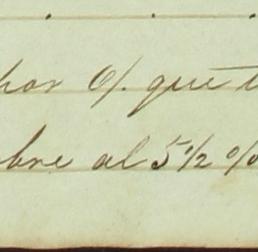 por %. que
bre al 5 1/2 %